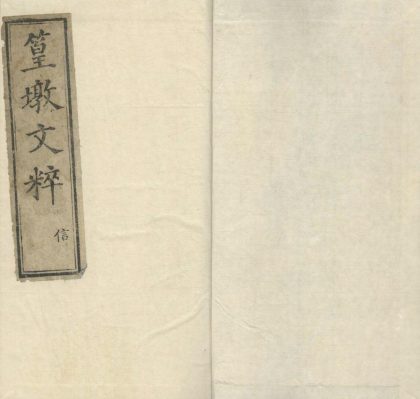 篁墩文粹
信